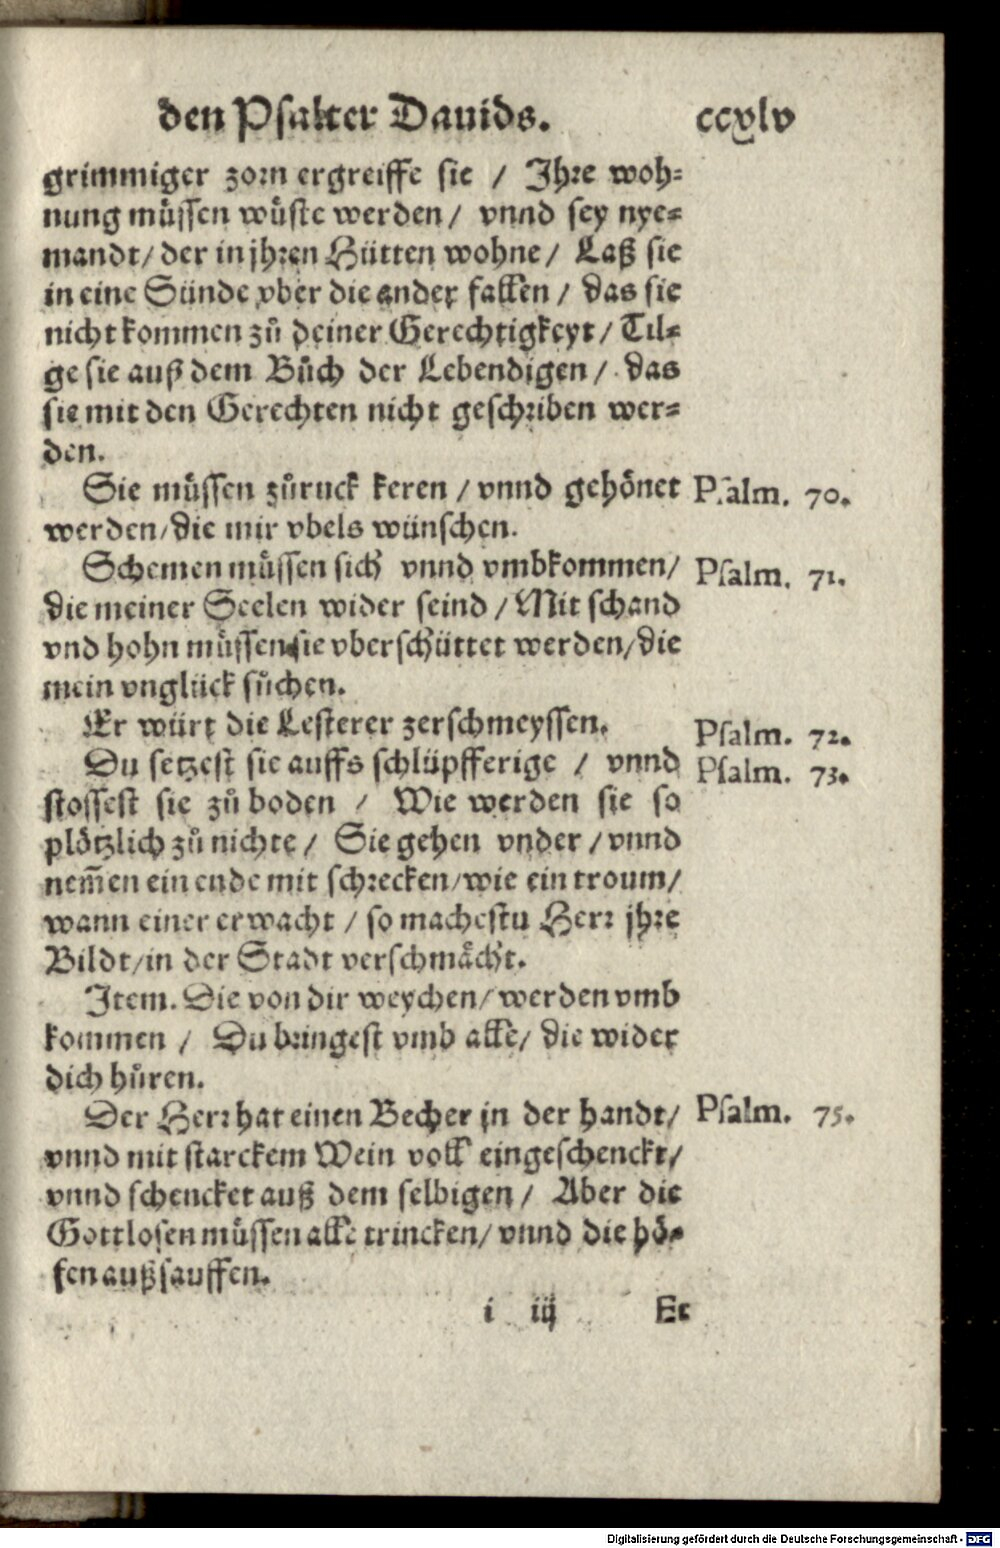 den Psalter Dauids. ccxlv
grimmiger zorn ergreiffe sie / Ihre woh-
nung müssen wüste werden / vnnd sey nye-
mandt / der in jhren Hütten wohne / Laß sie
in eine Sünde vber die ander fallen / das sie
nicht kommen zů deiner Gerechtigkeyt / Til-
ge sie auß dem Bůch der Lebendigen / das
sie mit den Gerechten nicht geschriben wer-
den.
Sie müssen zůruck keren / vnnd gehönet Psalm. 70.
werden / die mir vbels wünschen.
Schemen müssen sich vnnd vmbkommen / Psalm. 71.
die meiner Seelen wider seind / Mit schand
vnd hohn müssen sie vberschüttet werden / die
mein vnglück sůchen.
Er würt die Lesterer zerschmeyssen. Psalm. 72.
Du setzest sie auffs schlüpfferige / vnnd Psalm. 73.
stossest sie zů boden / Wie werden sie so
plötzlich zů nichte / Sie gehen vnder / vnnd
nem̃en ein ende mit schrecken / wie ein troum /
wann einer erwacht / so machestu Herr jhre
Bildt / in der Stadt verschmächt.
Item. Die von dir weychen / werden vmb
kommen / Du bringest vmb alle / die wider
dich hůren.
Der Herr hat einen Becher in der handt / Psalm. 75.
vnnd mit starckem Wein voll eingeschenckt /
vnnd schencket auß dem selbigen / Aber die
Gottlosen müssen alle trincken / vnnd die hö-
fen außsauffen.
i iij Er
Digitalisierung gefördert durch die Deutsche Forschungsgemeinschaft - DFG